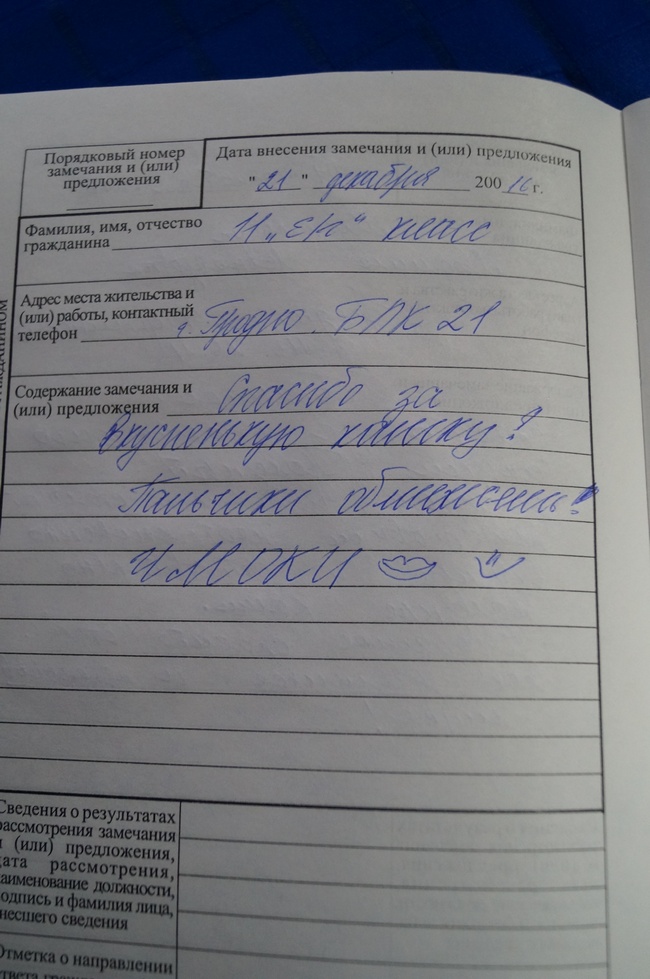 Порядковый номер
замечания и (или)
предложения
Дата внесения замечания и (или) предложения
"21" декабря 200 16 г.
Фамилия, имя, отчество
гражданина
класс
Адрес места жительства и
(или) работы, контактный
телефон г. Гродно. БЛК 21
Содержание замечания и
(или) предложения Спасибо за
вкусненькую кашку!
Пальчики оближешь!
ЧМОКИ
Сведения о результатах
рассмотрения замечания
и (или) предложения,
дата рассмотрения,
наименование должности,
подпись и фамилия лица,
внесшего сведения
Отметка о направлении